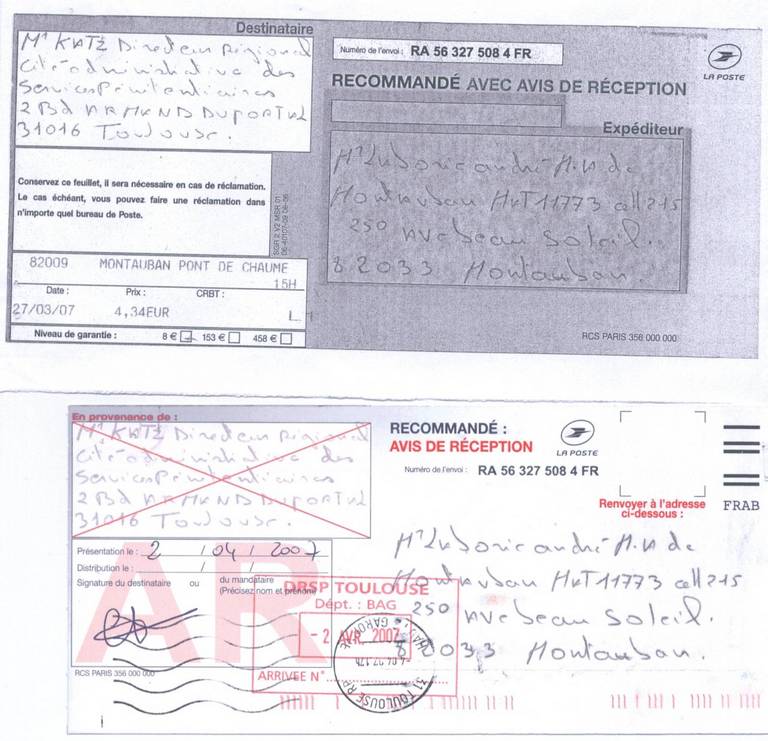 Destinataire
Mr KATZ Directeur Régional
Cité administrative des
Services Pénitentiaires
2 Bd ARMAND DUPORTAL
31016 Toulouse.
Numéro de l'envoi : RA 56 327 508 4 FR
LA POSTE
RECOMMANDÉ AVEC AVIS DE RÉCEPTION
Expéditeur
Mr André M.A de
Montauban 11773 cell 215
250 Ave beau Soleil.
82033 Montauban.
Conservez ce feuillet, il sera nécessaire en cas de réclamation.
Le cas échéant, vous pouvez faire une réclamation dans
n'importe quel bureau de Poste.
SGR 2 V2 MSR 01
82009 MONTAUBAN PONT DE CHAUME
15H
Date : Prix : CRBT :
27/03/07 4,34EUR L
Niveau de garantie : 8 € 153 € 458 €
RCS PARIS 356 000 000
En provenance de :
Mr KATZ Directeur Régional
Cité administrative des
Services Pénitentiaires
2 Bd ARMAND DUPORTAL
31016 Toulouse.
RECOMMANDÉ :
AVIS DE RÉCEPTION
LA POSTE
Numéro de l'envoi : RA 56 327 508 4 FR
Renvoyer à l'adresse
ci-dessous :
FRAB
Présentation le : 2 / 04 / 2007
Distribution le : / /
Signature du destinataire ou du mandataire
(Précisez nom et prénom)
AR
Mr André M.A de
Montauban 11773 cell 215
250 Ave beau Soleil.
82033 Montauban.
DRSP TOULOUSE
Dépt. : BAG
- 2 AVR. 2007
ARRIVEE N°
31 TOULOUSE RP
RCS PARIS 356 000 000